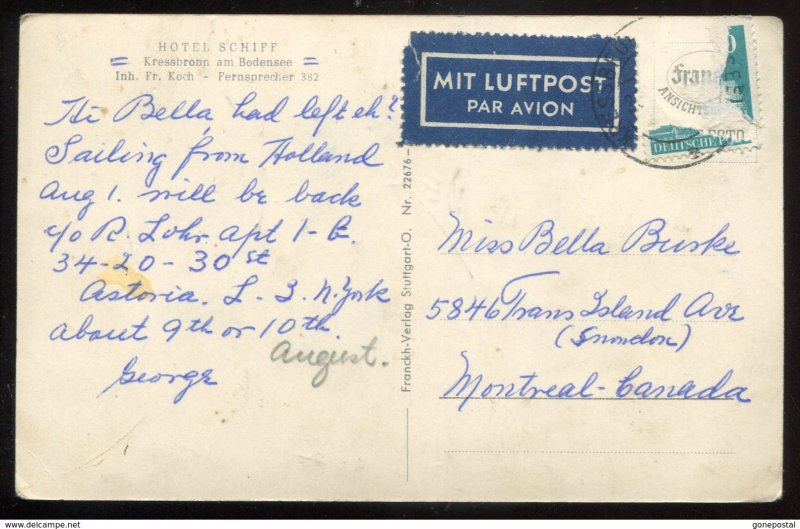 HOTEL SCHIFF
Kressbronn am Bodensee
Inh. Fr. Koch - Fernsprecher 382
Hi Bella, had left eh?
Sailing from Holland
Aug 1. will be back
c/o R. Lohr. apt 1-E.
34-20-30 St
Astoria. L. I. N. York
about 9th or 10th
August.
George
Franckh-Verlag Stuttgart-O. Nr. 22676-
MIT LUFTPOST
PAR AVION
Franc
ANSICHTS
FOTO
DEUTSCHE P
Miss Bella Burke
5846 Trans Island Ave
(Snowdon)
Montreal-Canada
https://www.delcampe.net
gonepostal